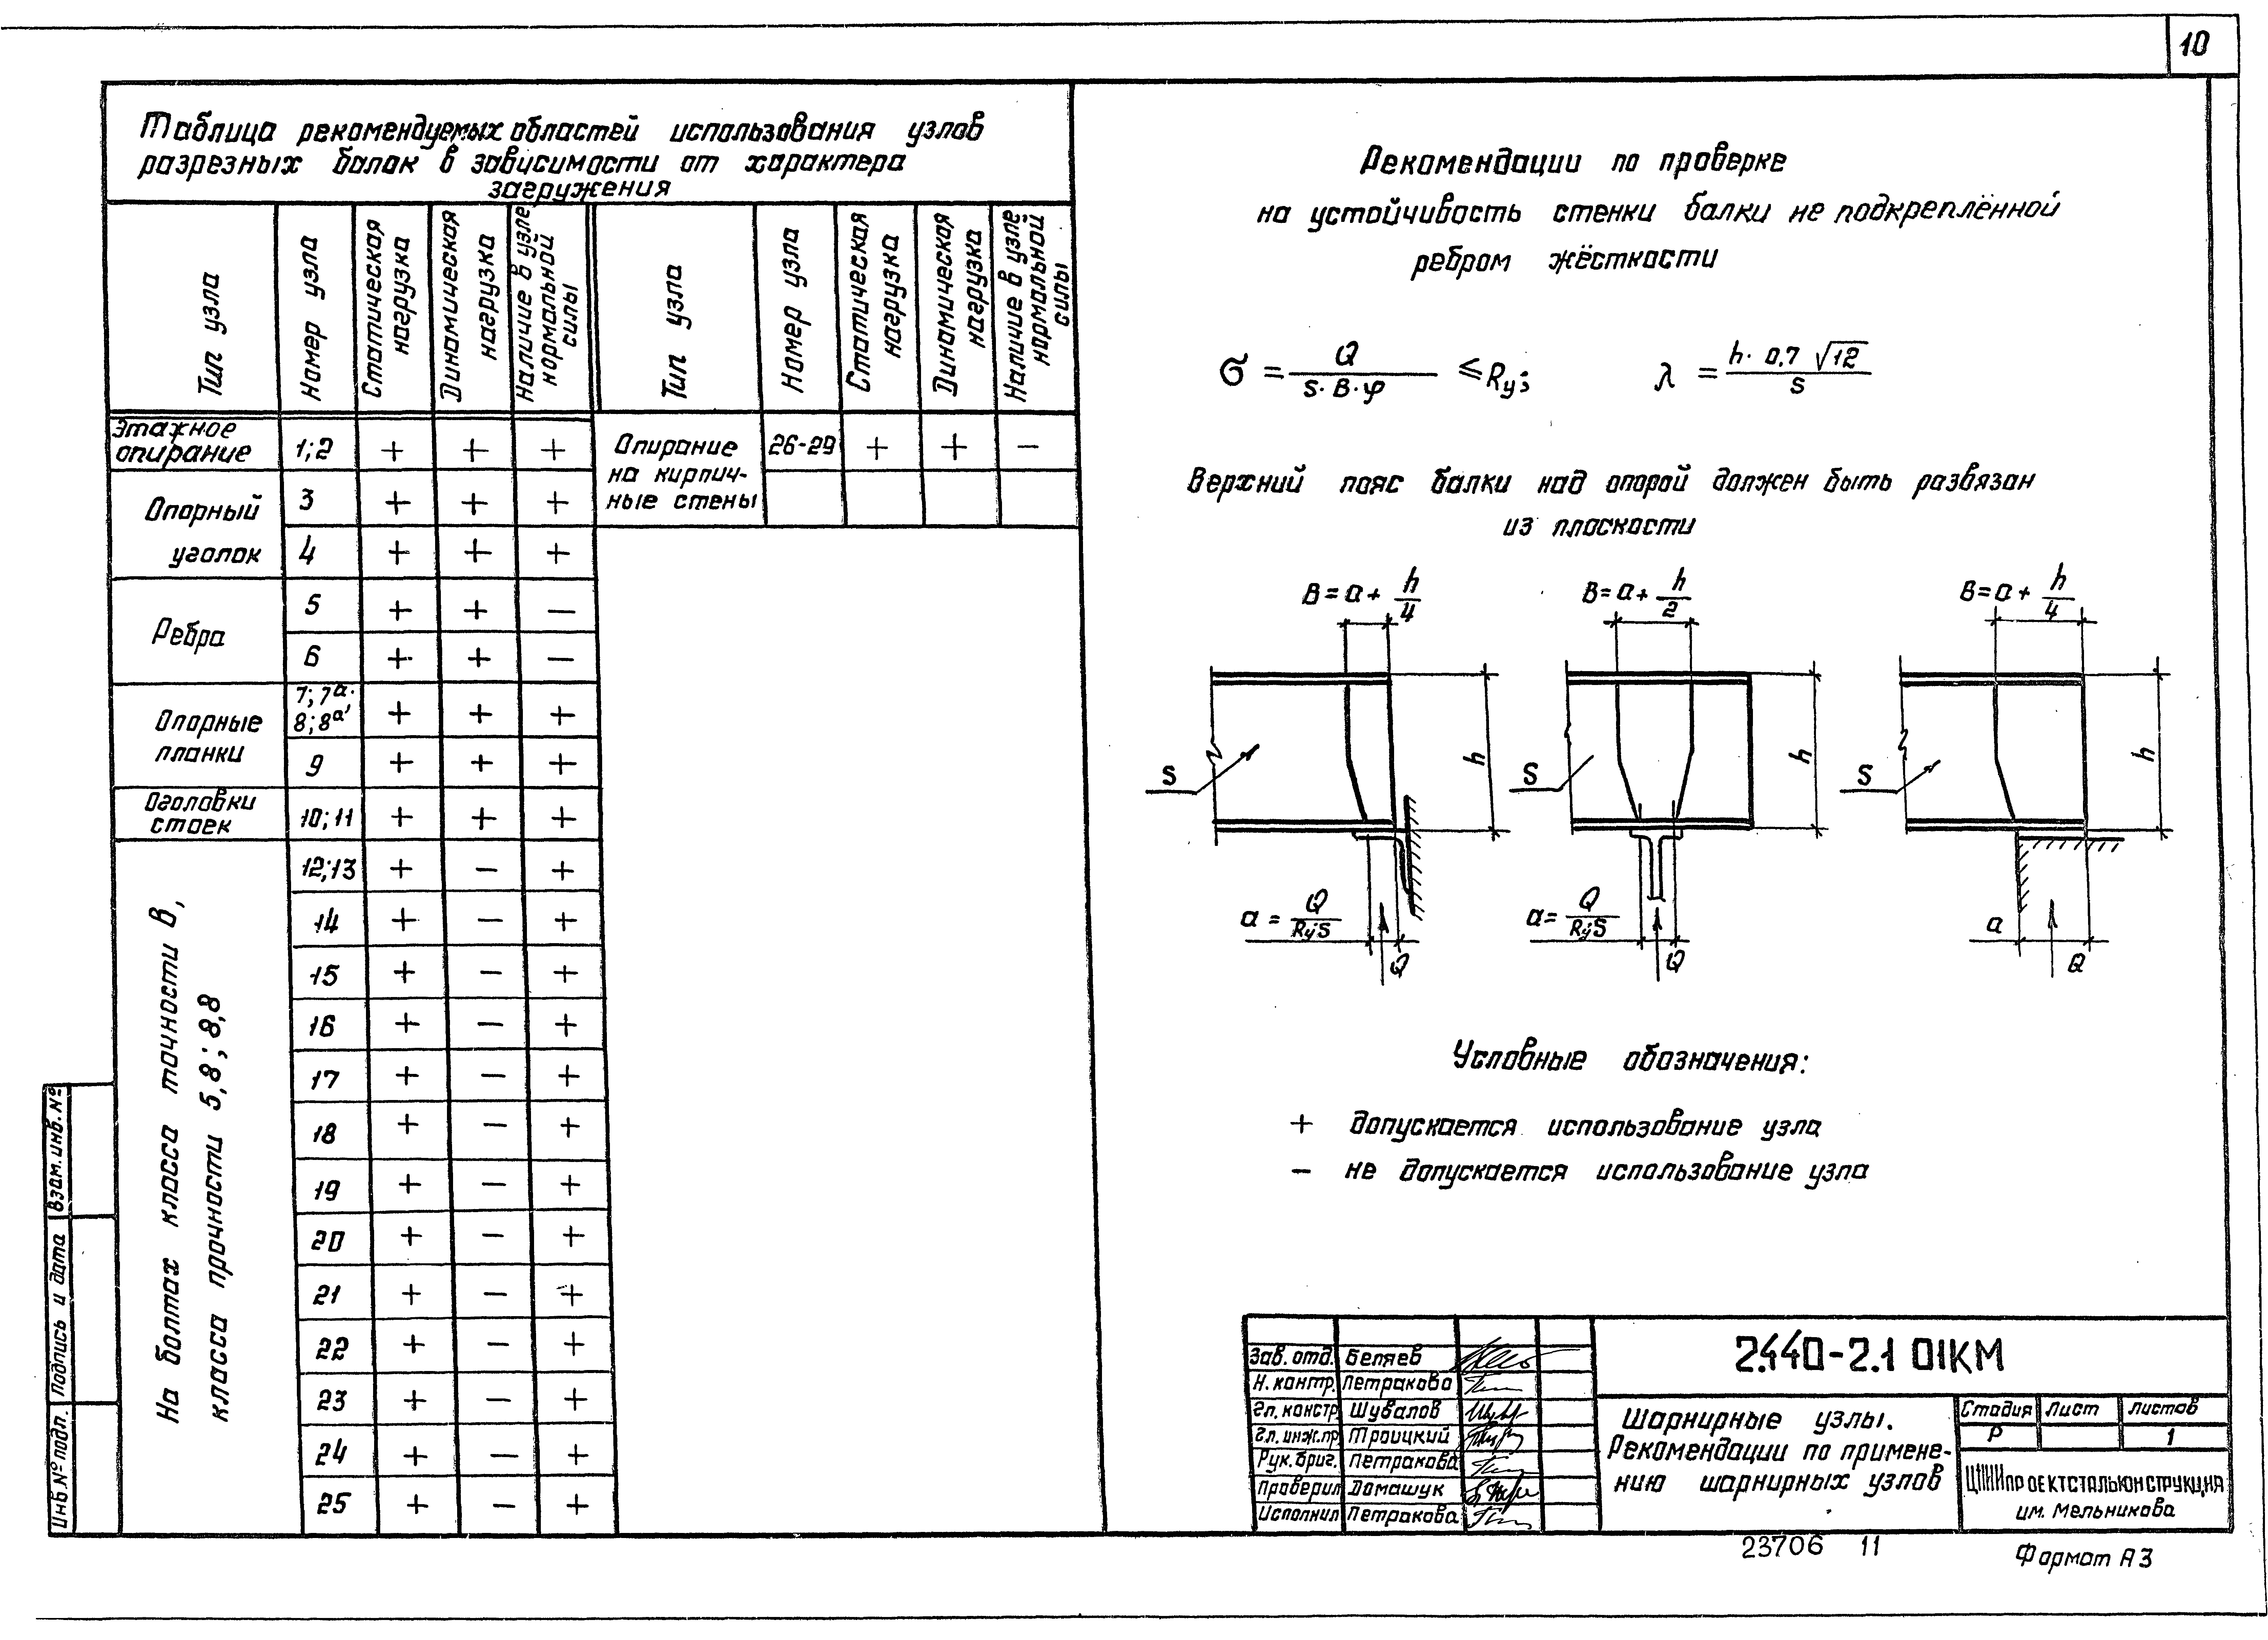 10
Таблица рекомендуемых областей использования узлов
разрезных балок в зависимости от характера
загружения
Тип узла
Номер узла
Статическая
нагрузка
Динамическая
нагрузка
Наличие в узле
нормальной
силы
Тип узла
Номер узла
Статическая
нагрузка
Динамическая
нагрузка
Наличие в узле
нормальной
силы
Этажное
опирание
1;2 + + +
Опирание
на кирпич-
ные стены
26-29 + + −
Опорный
уголок
3 + + +
4 + + +
Ребра
5 + + −
6 + + −
Опорные
планки
7; 7а.
8; 8а' + + +
9 + + +
Оголовки
стоек
10; 11 + + +
На болтах класса точности В,
класса прочности 5,8; 8,8
12;13 + − +
14 + − +
15 + − +
16 + − +
17 + − +
18 + − +
19 + − +
20 + − +
21 + − +
22 + − +
23 + − +
24 + − +
25 + − +
Рекомендации по проверке
на устойчивость стенки балки не подкреплённой
ребром жёсткости
σ = Q / s·B·φ ≤ Ry; λ = h·0,7 √12 / s
Верхний пояс балки над опорой должен быть развязан
из плоскости
B = a + h/4
B = a + h/2
B = a + h/4
S h S h S h
a = Q/RyS
a = Q/RyS
a
Q Q Q
Условные обозначения:
+ допускается использование узла
− не допускается использование узла
Инв.№подл. Подпись и дата Взам.инв.№
Зав. отд. Беляев
Н. контр. Петракова
Гл. констр Шувалов
Гл. инж.пр Троицкий
Рук. бриг. Петракова
Проверил Домашук
Исполнил Петракова
2.440-2.1 01КМ
Шарнирные узлы.
Рекомендации по примене-
нию шарнирных узлов
Стадия Лист Листов
Р 1
ЦНИИпроектстальконструкция
им. Мельникова
23706 11
Формат А3